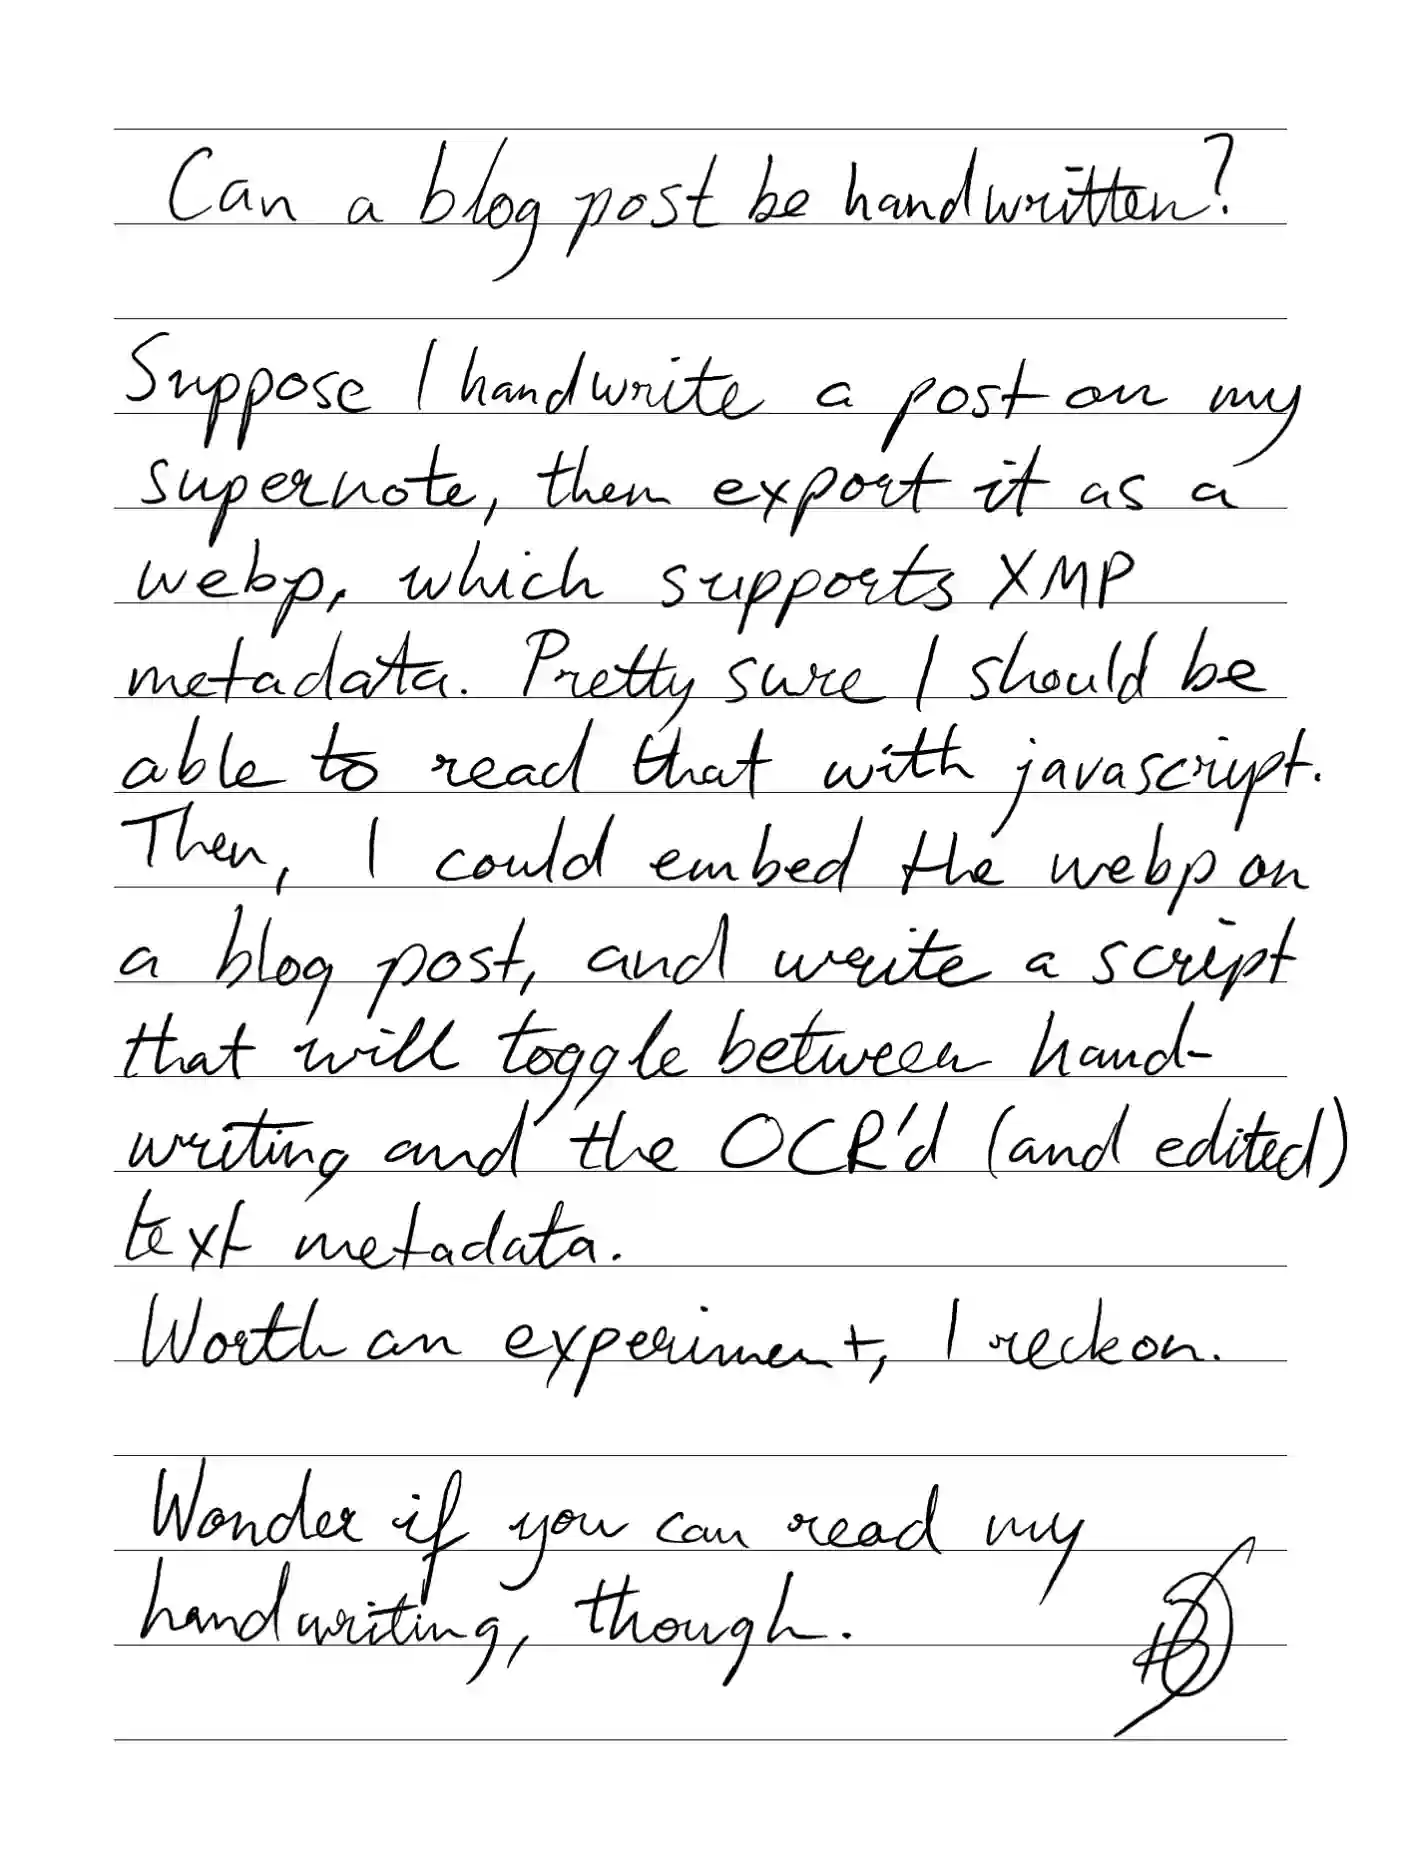 Can a blog post be handwritten?
Suppose I handwrite a post on my
supernote, then export it as a
webp, which supports XMP
metadata. Pretty sure I should be
able to read that with javascript.
Then, I could embed the webp on
a blog post, and write a script
that will toggle between hand-
writing and the OCR'd (and edited)
text metadata.
Worth an experiment, I reckon.
Wonder if you can read my
handwriting, though.